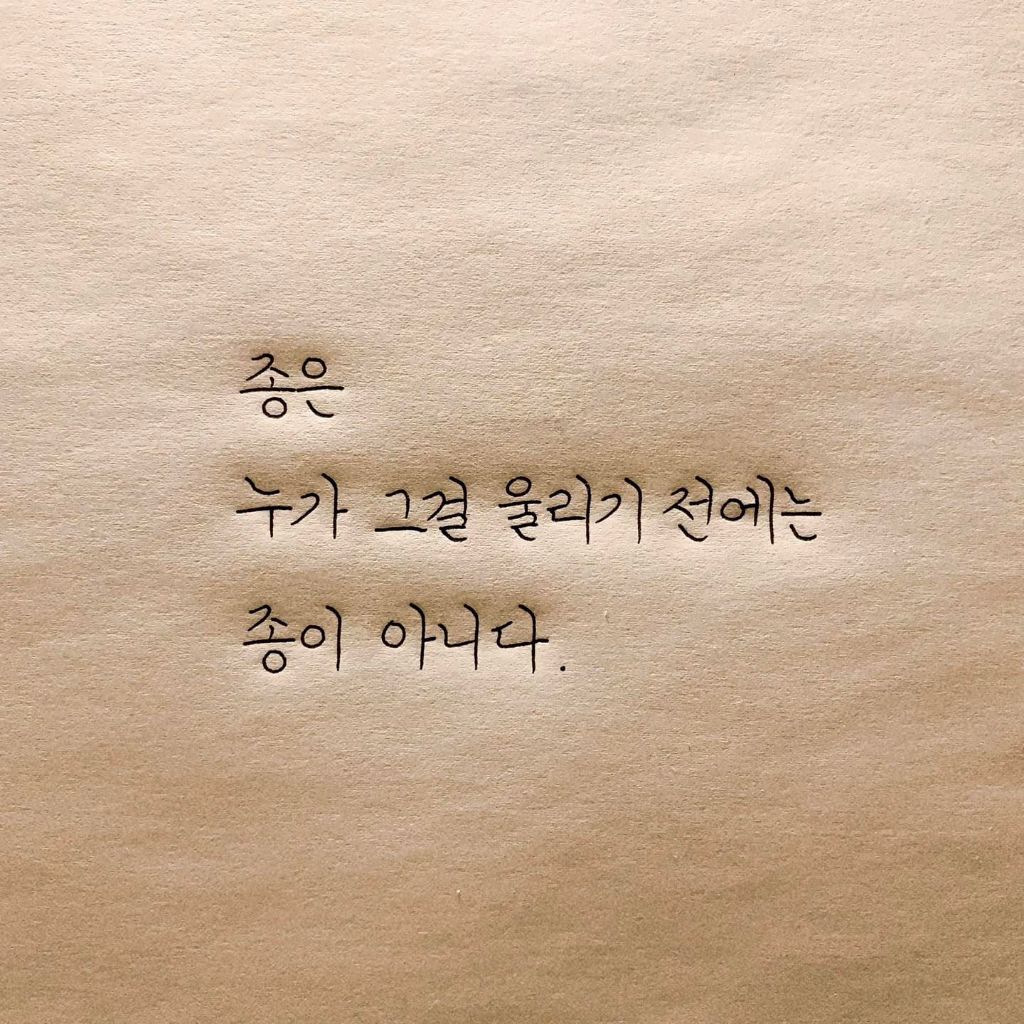 종은
누가 그걸 울리기 전에는
종이 아니다.